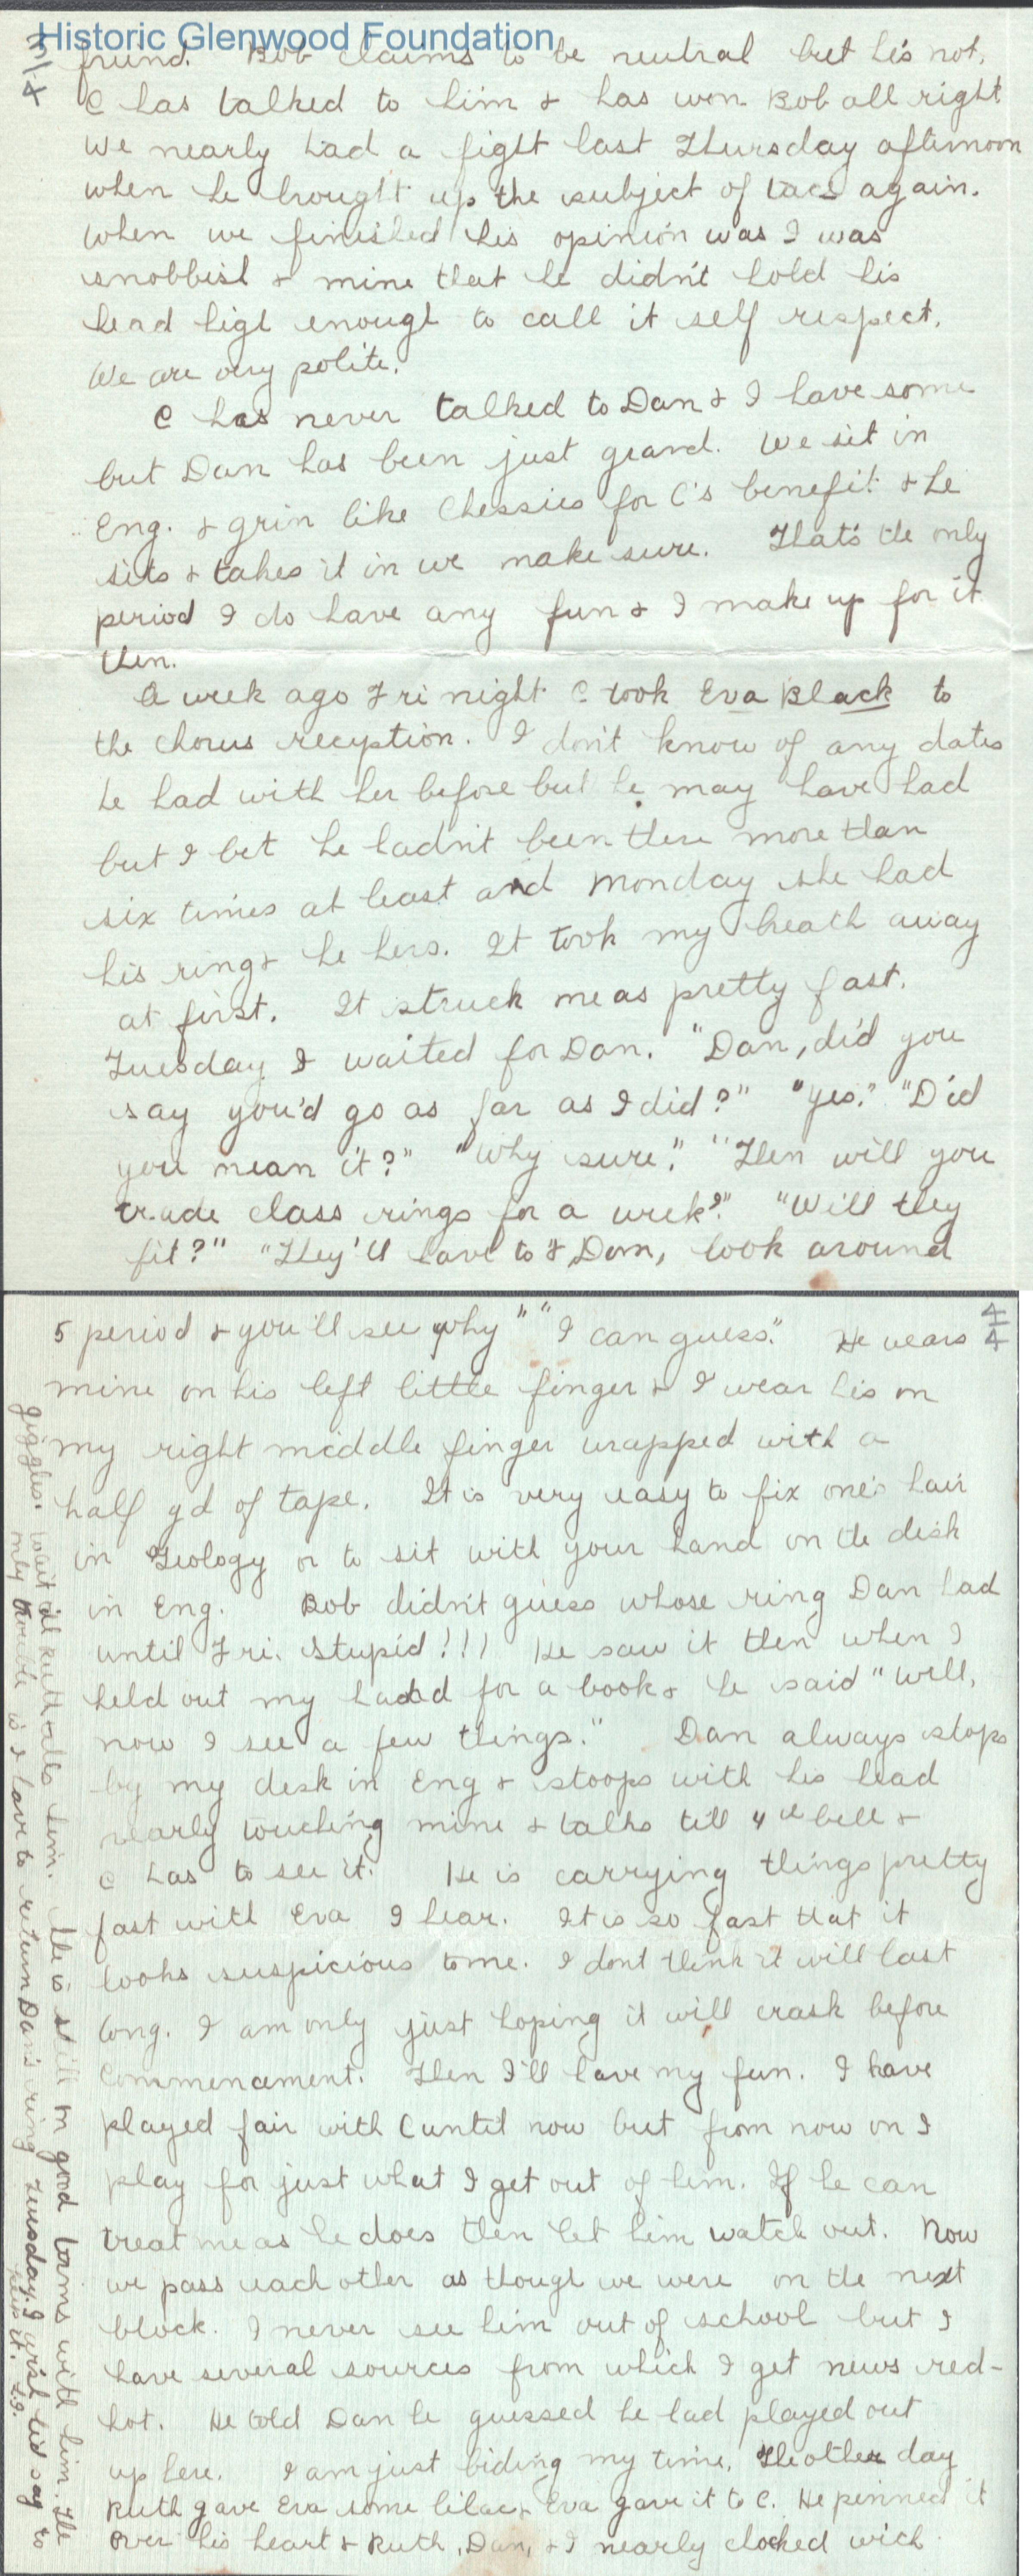 Historic Glenwood Foundation
3/4
friend. Bob claims to be neutral but he's not.
C has talked to him & has won Bob all right
We nearly had a fight last Thursday afternoon
when he brought up the subject of again.
When we finished his opinion was I was
snobbish & mine that he didn't hold his
head high enough to call it self respect.
We are very polite.
C has never talked to Dan & I have some
but Dan has been just grand. We sit in
Eng. & grin like Chessies for C's benefit & he
sits & takes it in we make sure. That's the only
period I do have any fun & I make up for it
then.
A week ago Fri night C took Eva Black to
the chorus reception. I don't know of any dates
he had with her before but he may have had
but I bet he hadn't been there more than
six times at least and Monday she had
his ring & he hers. It took my breath away
at first. It struck me as pretty fast.
Tuesday I waited for Dan. "Dan, did you
say you'd go as far as I did?" "Yes." "Did
you mean it?" "Why sure." "Then will you
trade class rings for a week?" "Will they
fit?" "They'll have to & Dan, look around
4/4
5 period & you'll see why" "I can guess." He wears
mine on his left little finger & I wear his on
my right middle finger wrapped with a
half yd of tape. It is very easy to fix one's hair
in Geology or to sit with your hand on the desk
in Eng. Bob didn't guess whose ring Dan had
until Fri. Stupid!!! He saw it then when I
held out my hand for a book & he said "Well,
now I see a few things." Dan always stops
by my desk in Eng & stoops with his head
nearly touching mine & talks till the bell &
C has to see it. He is carrying things pretty
fast with Eva I hear. It is so fast that it
looks suspicious to me. I dont think it will last
long. I am only just hoping it will crash before
Commencement. Then I'll have my fun. I have
played fair with C until now but from now on I
play for just what I get out of him. If he can
treat me as he does then let him watch out. Now
we pass each other as though we were on the next
block. I never see him out of school but I
have several sources from which I get news red-
hot. He told Dan he guessed he had played out
up here. I am just biding my time. The other day
Ruth gave Eva some lilac & Eva gave it to C. He pinned it
over his heart & Ruth, Dan, & I nearly choked with
giggles. Wait til Ruth tells him. She is still on good terms with him. The
only trouble is I have to return Dan's ring Tuesday. I wish he'd say to
keep it.